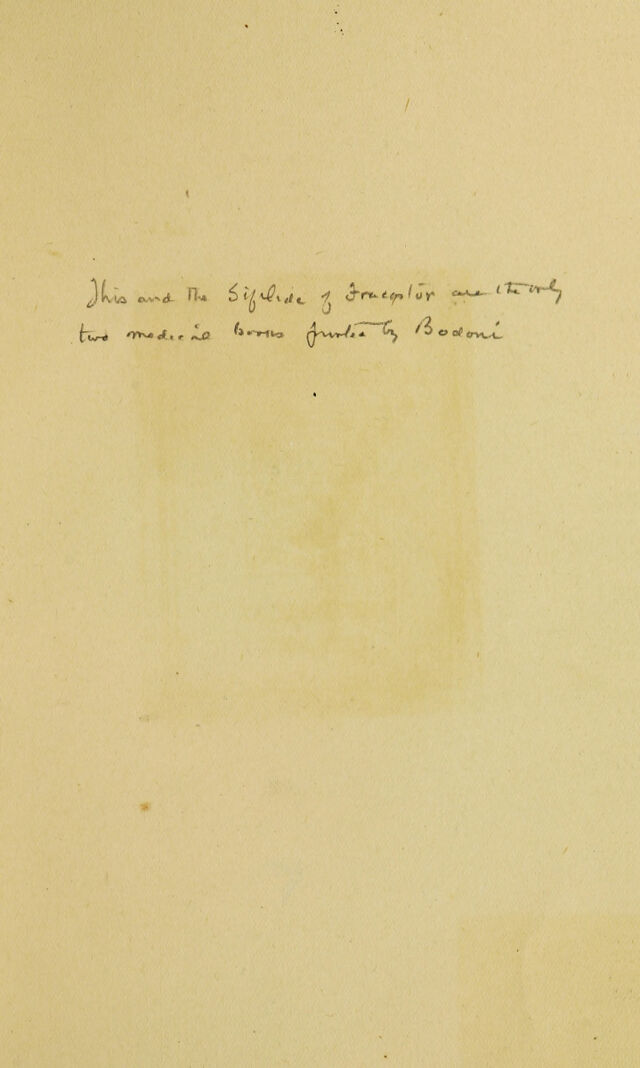 This and the Sifilide of Fracastor are the only
two medical books printed by Bodoni